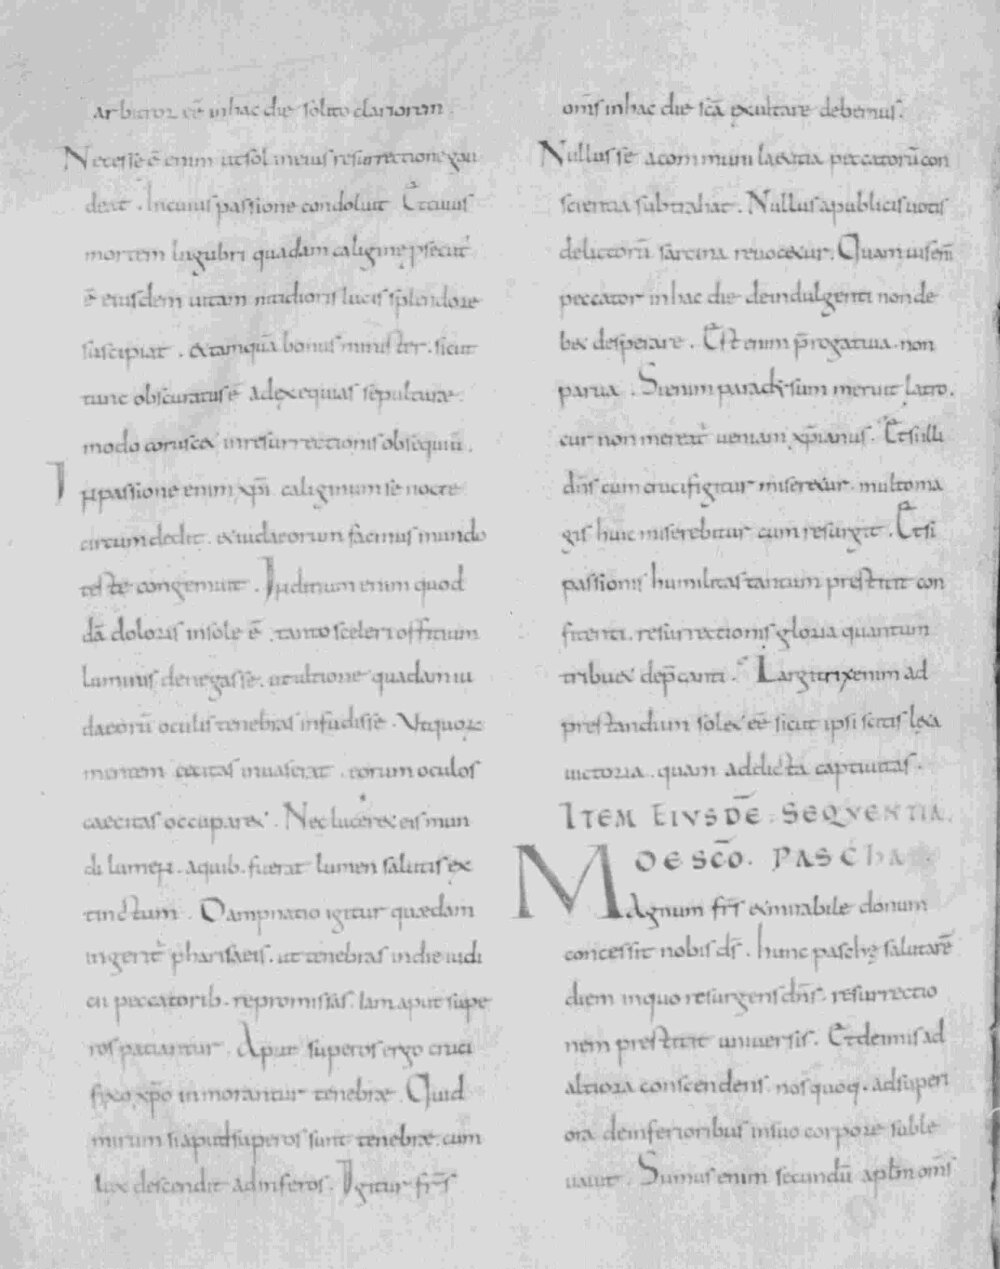 arbitror eē inhac die solito clariorem.
Necesse ē enim utsol ineius resurrectione gau
deat. Incuius passione condoluit Etcuius
mortem lugubri quadam caliginę psecut'
ē eiusdem uitam nitidioris lucis splendore
suscipiat. &tamquā bonus minister. sicut
tunc obscuratus ē adexequias sepulturae
modo corusc& inresurrectionis obsequiū.
In passione enim xp̄i caliginum se nocte
circumdedit. &iudaeorum facinus mundo
teste congemuit. Iudicium enim quod
dā doloris insole ē. tanto sceleri officium
luminis denegasse. utultione quadam iu
daeorū oculis tenebras infudisse. Vtquorę
mentem cecitas inuaserat. eorum oculos
caecitas occupar&. Nec lucer& eis mun
di lumen. aquib. fuerat lumen salutis ex
tinctum. Dampnatio igitur quædam
ingerit' pharisaeis. ut tenebras indie iudi
cii peccatorib. repromissas. Iam aput supe
ros patiantur. Aput superos ergo cruci
fixo xp̄o inmorantur tenebræ. Quid
mirum siapud superos sunt tenebræ. cum
lux descendit adinferos. Igitur fr̄s
om̄s inhac die sc̄a exultare debemus.
Nullus se acommuni laetitia peccatorū con
scientia subtrahat. Nullus apublicis uotis
delictorū sarcina reuocetur. Quamuis enī
peccator inhac die deindulgenti non de
b& desperare. Est enim p̄rogatiua. non
parua. Sienim paradysum meruit latro.
cur non mereat' ueniam xp̄ianus. Etsi illi
dn̄s cum crucifigitur miser&ur. multo ma
gis huic miserebitur cum resurgit. Etsi
passionis humilitas tantum prestitit con
fitenti. resurrectionis gloria quantum
tribu& dep̄canti. Largitrix enim ad
prestandum sol& eē sicut ipsi scitis l&a
uictoria. quam addicta captiuitas.
ITEM EIVSDĒ. SEQVENTIA.
DE SC̄O. PASCHA
MAgnum fr̄s &mirabile donum
concessit nobis ds̄. hunc paschę salutarē
diem inquo resurgens dn̄s. resurrectio
nem prestitit uniuersis. Et deimis ad
altiora conscendens. nos quoq. adsuperi
ora deinferioribus insuo corpore suble
uauit. Sumus enim secundū aplm̄ om̄s